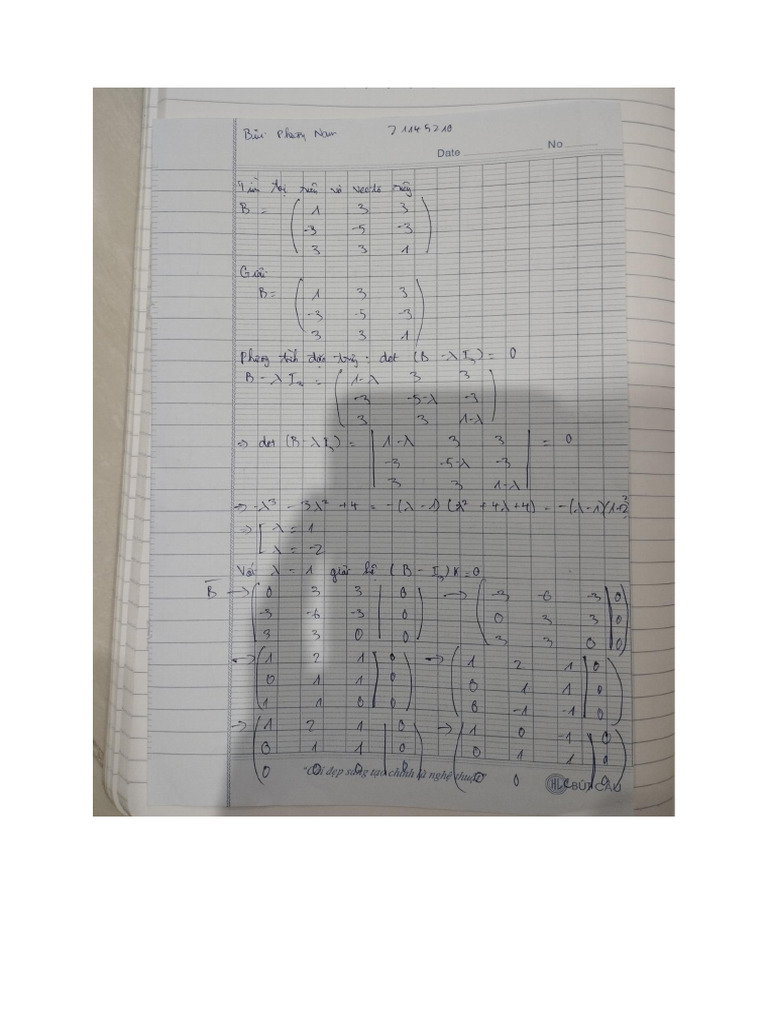 Bùi Phương Nam 71145210
Date No
Tìm trị riêng và vectơ riêng
B = ( 1 3 3
-3 -5 -3
3 3 1 )
Giải:
B = ( 1 3 3
-3 -5 -3
3 3 1 )
Phương trình đặc trưng: det (B - λI₃) = 0
B - λI₃ = ( 1-λ 3 3
-3 -5-λ -3
3 3 1-λ )
=> det (B - λI₃) = | 1-λ 3 3 | = 0
-3 -5-λ -3
3 3 1-λ |
-> -λ³ - 3λ² + 4 = -(λ - 1)(λ² + 4λ + 4) = -(λ - 1)(λ+2)²
=> [ λ = 1
[ λ = -2
Với λ = 1 giải hệ (B - I₃)X = 0
B̅ -> ( 0 3 3 | 0 ) -> ( -3 -6 -3 | 0 )
-3 -6 -3 | 0 0 3 3 | 0
3 3 0 | 0 ) 3 3 0 | 0 )
-> ( 1 2 1 | 0 -> ( 1 2 1 | 0
0 1 1 | 0 0 1 1 | 0
1 1 0 | 0 ) 0 -1 -1 | 0 )
-> ( 1 2 1 | 0 -> ( 1 0 -1 | 0
0 1 1 | 0 0 1 1 | 0
0 0 0 | 0 ) 0 0 0 | 0 )
"Cái đẹp sáng tạo chính là nghệ thuật" HLC BÚT CÂU